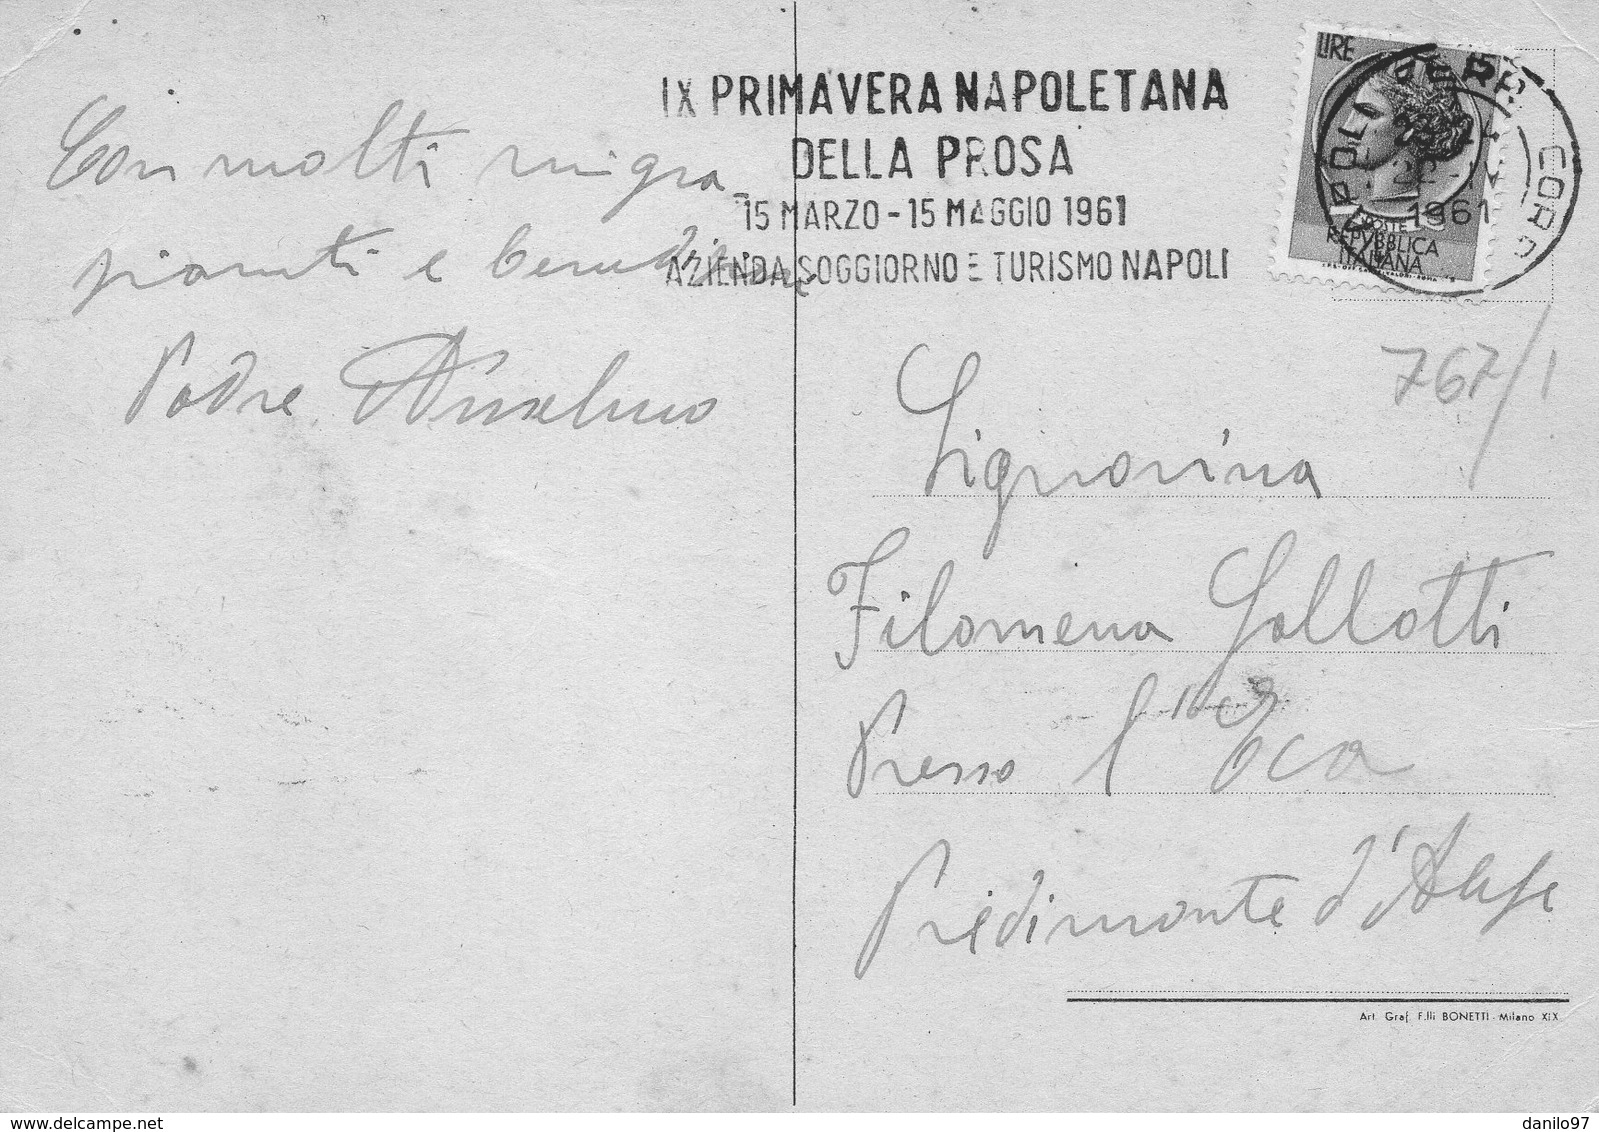 Con molti ringra_
ziamenti e benedizioni
Padre Anselmo
IX PRIMAVERA NAPOLETANA
DELLA PROSA
15 MARZO - 15 MAGGIO 1961
AZIENDA SOGGIORNO E TURISMO NAPOLI
LIRE
1961
POSTE
REPVBBLICA
ITALIANA
767/1
Signorina
Filomena Gallotti
Presso l'
Piedimonte d'Alife
Art. Graf. F.lli BONETTI - Milano XIX
www.delcampe.net
danilo97